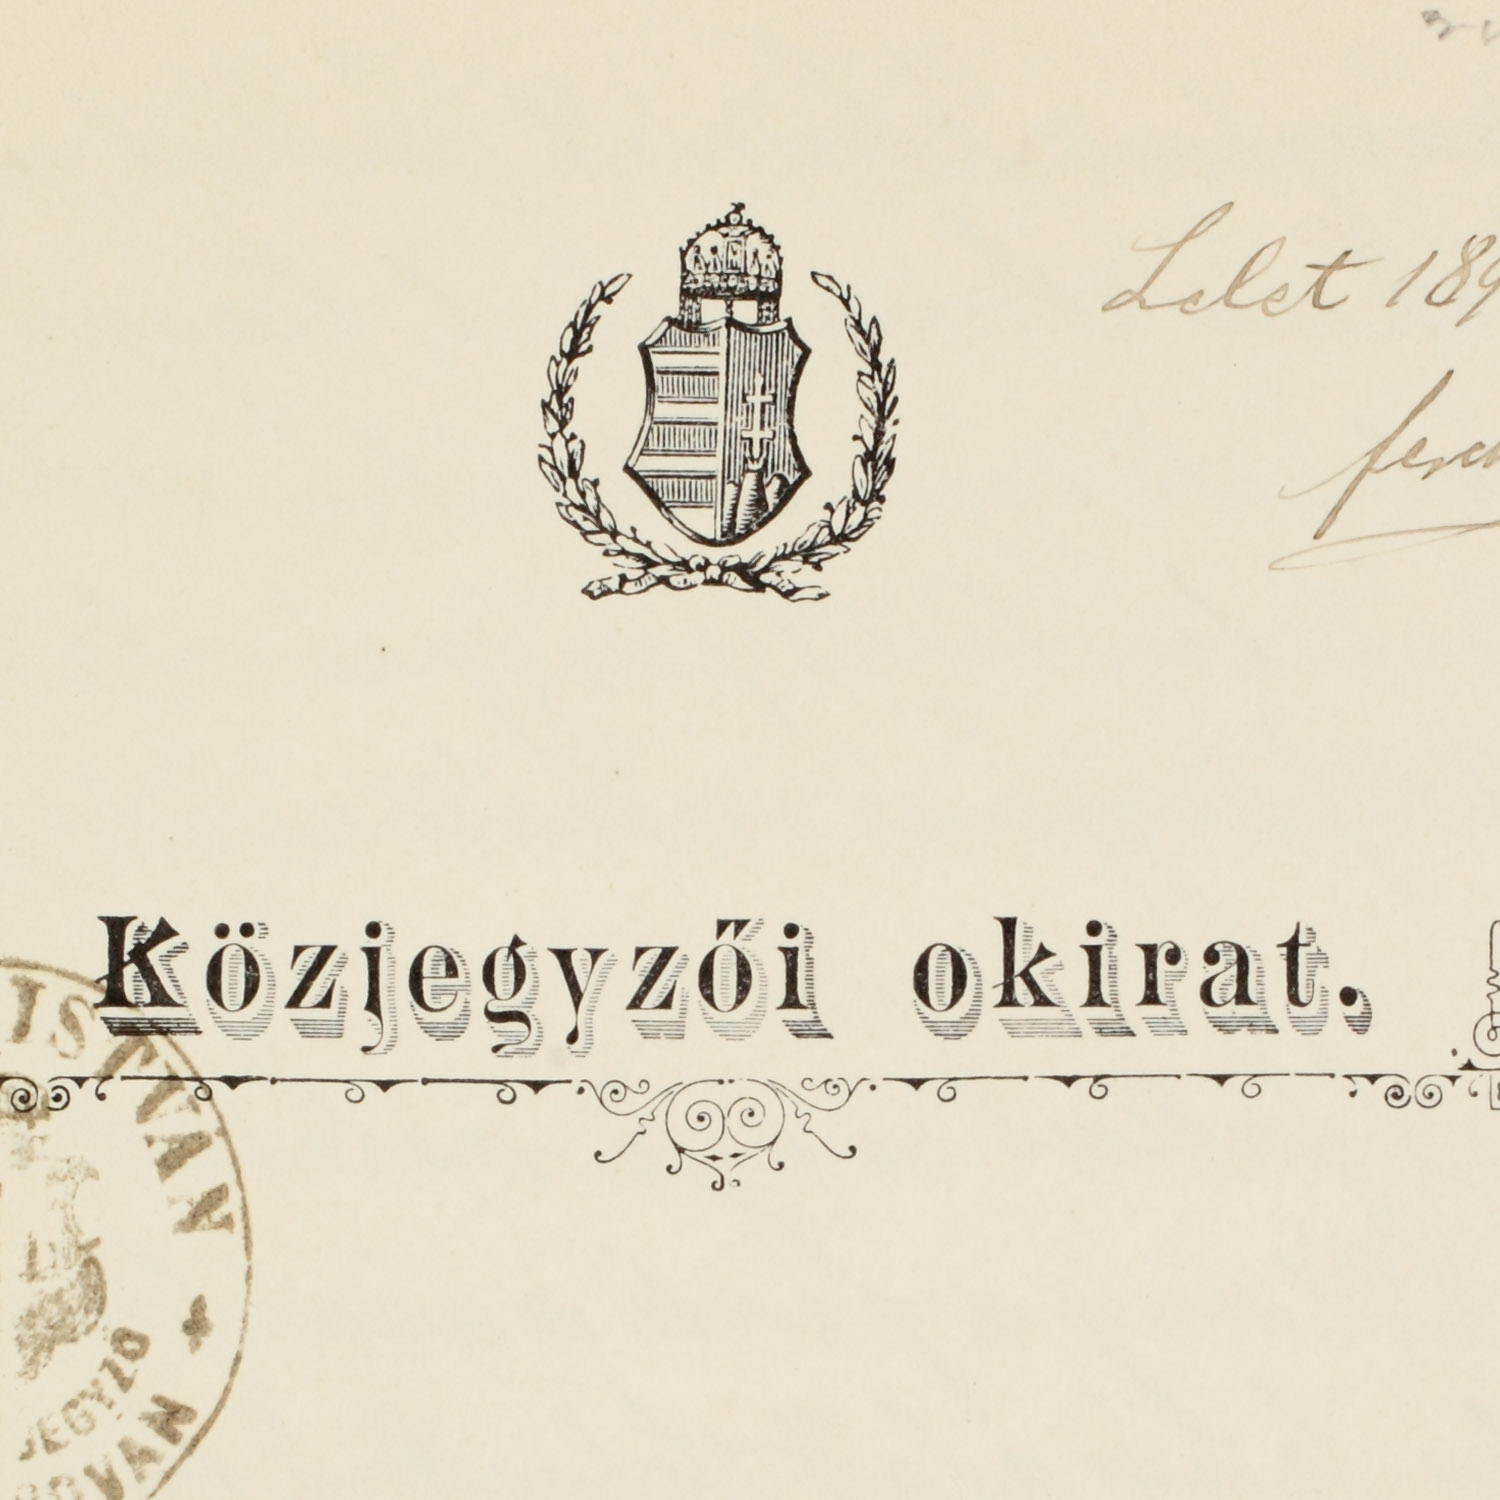 Lelet 189
Közjegyzői okirat.
ISTVÁN
JEGYZŐ